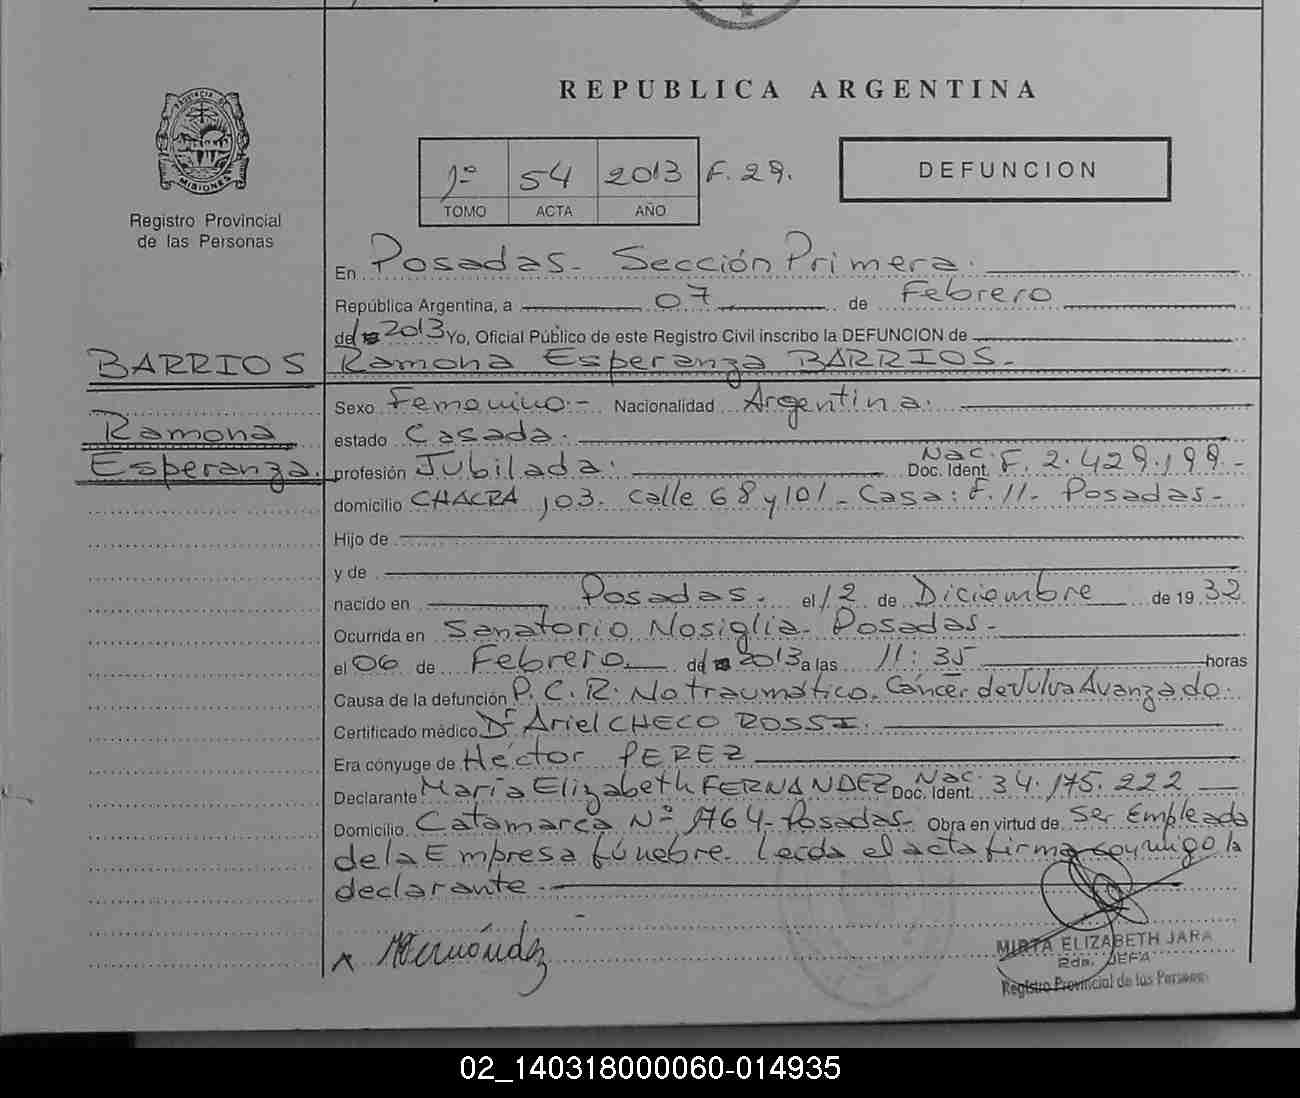 REPUBLICA ARGENTINA
PROVINCIA DE MISIONES
Registro Provincial
de las Personas
1º 54 2013 F. 29.
TOMO ACTA AÑO
DEFUNCION
En Posadas- Sección Primera.
República Argentina, a 07 de Febrero
del 2013 Yo, Oficial Público de este Registro Civil inscribo la DEFUNCION de
BARRIOS
Ramona Esperanza BARRIOS.-
Ramona
Esperanza.
Sexo Femenino.- Nacionalidad Argentina.
estado Casada.
profesión Jubilada. Nac. Doc. Ident. F. 2.429.199-
domicilio CHACRA 103. Calle 68 y 101- Casa: F. 11- Posadas-
Hijo de
y de
nacido en Posadas- el 12 de Diciembre de 1932
Ocurrida en Sanatorio Nosiglia- Posadas-
el 06 de Febrero del 2013 a las 11:35 horas
Causa de la defunción P.C.R. No traumático. Cáncer de Vulva Avanzado.
Certificado médico Dr Ariel CHECO ROSSI.
Era cónyuge de Héctor PEREZ
Declarante María Elizabeth FERNANDEZ Nac. Doc. Ident. 34.175.222
Domicilio Catamarca Nº 1764- Posadas- Obra en virtud de ser Empleada
de la Empresa fúnebre. Leída el acta firma conmigo la
declarante.-
MIRTA ELIZABETH JARA
2da. JEFA
Registro Provincial de las Personas
02_140318000060-014935